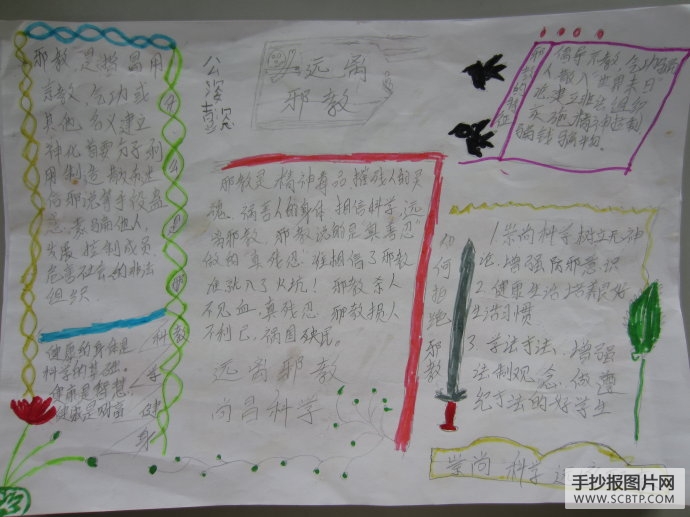 邪教是指冒用
宗教、气功或
其他名义建立
神化首要分子利
用制造散布
歪理邪说等手段蛊
惑、蒙骗他人,
发展控制成员
危害社会的非法
组织.
什么是邪教
健康的身体是
科学的基础。
健康是智慧
健康是明亩
科学健身
远离
邪教
邪教是精神毒品摧残人的灵
魂,祸害人的身体 相信科学,远
离邪教,邪教说的是真善忍
做的真残忍.谁相信了邪教
谁跳入了火坑!邪教杀人
不见血,真残忍 邪教损人
不利己,祸国殃民。
远离邪教
尚昌科学
邪教的特征
倡导宗教、气功
人散入"世界末日"
建立非法组织
实施精神控制
骗钱骗物.
如何抵跑邪教
1.崇尚科学树立无神
论.增强防邪意识
2.健康生活培养良好
生活习惯
3.学法守法、增强
法制观念.做遵
纪守法的好学生
崇尚科学
手抄报图片网
WWW.SCBTP.COM